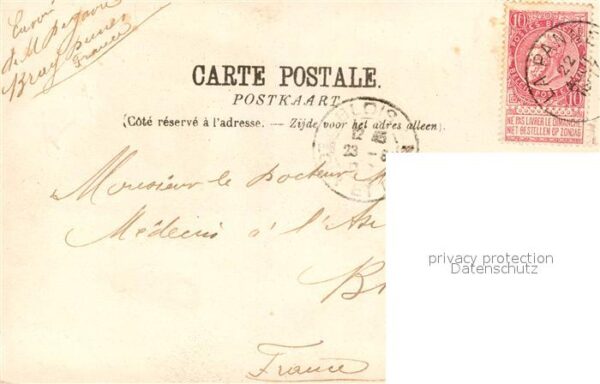 Envoi
de M Degavre
Bray Dunes
France
CARTE POSTALE.
POSTKAART
(Côté réservé à l'adresse. — Zijde voor het adres alleen).
10
10
POSTES
NE PAS LIVRER LE DIMANCHE
NIET BESTELLEN OP ZONDAG
PAN
22
BLOIS
12
23
Monsieur le Docteur
Médecin à l'As
B
France
privacy protection
Datenschutz